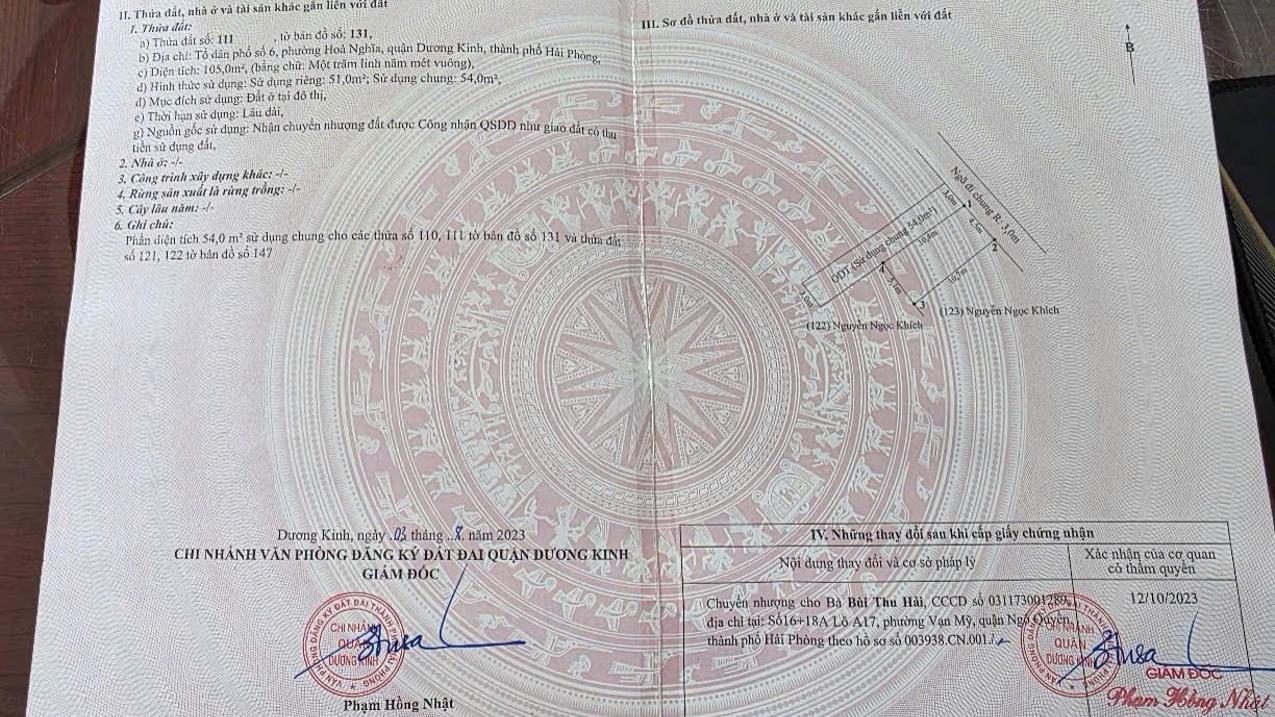 II. Thửa đất, nhà ở và tài sản khác gắn liền với đất
1. Thửa đất:
a) Thửa đất số: 111 , tờ bản đồ số: 131,
b) Địa chỉ: Tổ dân phố số 6, phường Hoà Nghĩa, quận Dương Kinh, thành phố Hải Phòng,
c) Diện tích: 105,0m², (bằng chữ: Một trăm linh năm mét vuông),
d) Hình thức sử dụng: Sử dụng riêng: 51,0m²; Sử dụng chung: 54,0m²,
đ) Mục đích sử dụng: Đất ở tại đô thị,
e) Thời hạn sử dụng: Lâu dài,
g) Nguồn gốc sử dụng: Nhận chuyển nhượng đất được Công nhận QSDĐ như giao đất có thu
tiền sử dụng đất,
2. Nhà ở: -/-
3. Công trình xây dựng khác: -/-
4. Rừng sản xuất là rừng trồng: -/-
5. Cây lâu năm: -/-
6. Ghi chú:
Phần diện tích 54,0 m² sử dụng chung cho các thửa số 110, 111 tờ bản đồ số 131 và thửa đất
số 121, 122 tờ bản đồ số 147
Dương Kinh, ngày 03 tháng 8 năm 2023
CHI NHÁNH VĂN PHÒNG ĐĂNG KÝ ĐẤT ĐAI QUẬN DƯƠNG KINH
GIÁM ĐỐC
CHI NHÁNH
QUẬN
DƯƠNG KINH
Phạm Hồng Nhật
III. Sơ đồ thửa đất, nhà ở và tài sản khác gắn liền với đất
B
Ngõ đi chung R: 3,0m
3,0m
1
4,5m
2
ODT (Sử dụng chung 54,0m²)
10,4m
4
5,1m
10,7m
3
3,0m
(122) Nguyễn Ngọc Khích
(123) Nguyễn Ngọc Khích
IV. Những thay đổi sau khi cấp giấy chứng nhận
Nội dung thay đổi và cơ sở pháp lý
Xác nhận của cơ quan
có thẩm quyền
Chuyển nhượng cho Bà Bùi Thu Hải, CCCD số 031173001289,
địa chỉ tại: Số16+18A Lô A17, phường Vạn Mỹ, quận Ngô Quyền,
thành phố Hải Phòng theo hồ sơ số 003938.CN.001./.
12/10/2023
CHI NHÁNH
QUẬN
DƯƠNG KINH
GIÁM ĐỐC
Phạm Hồng Nhật